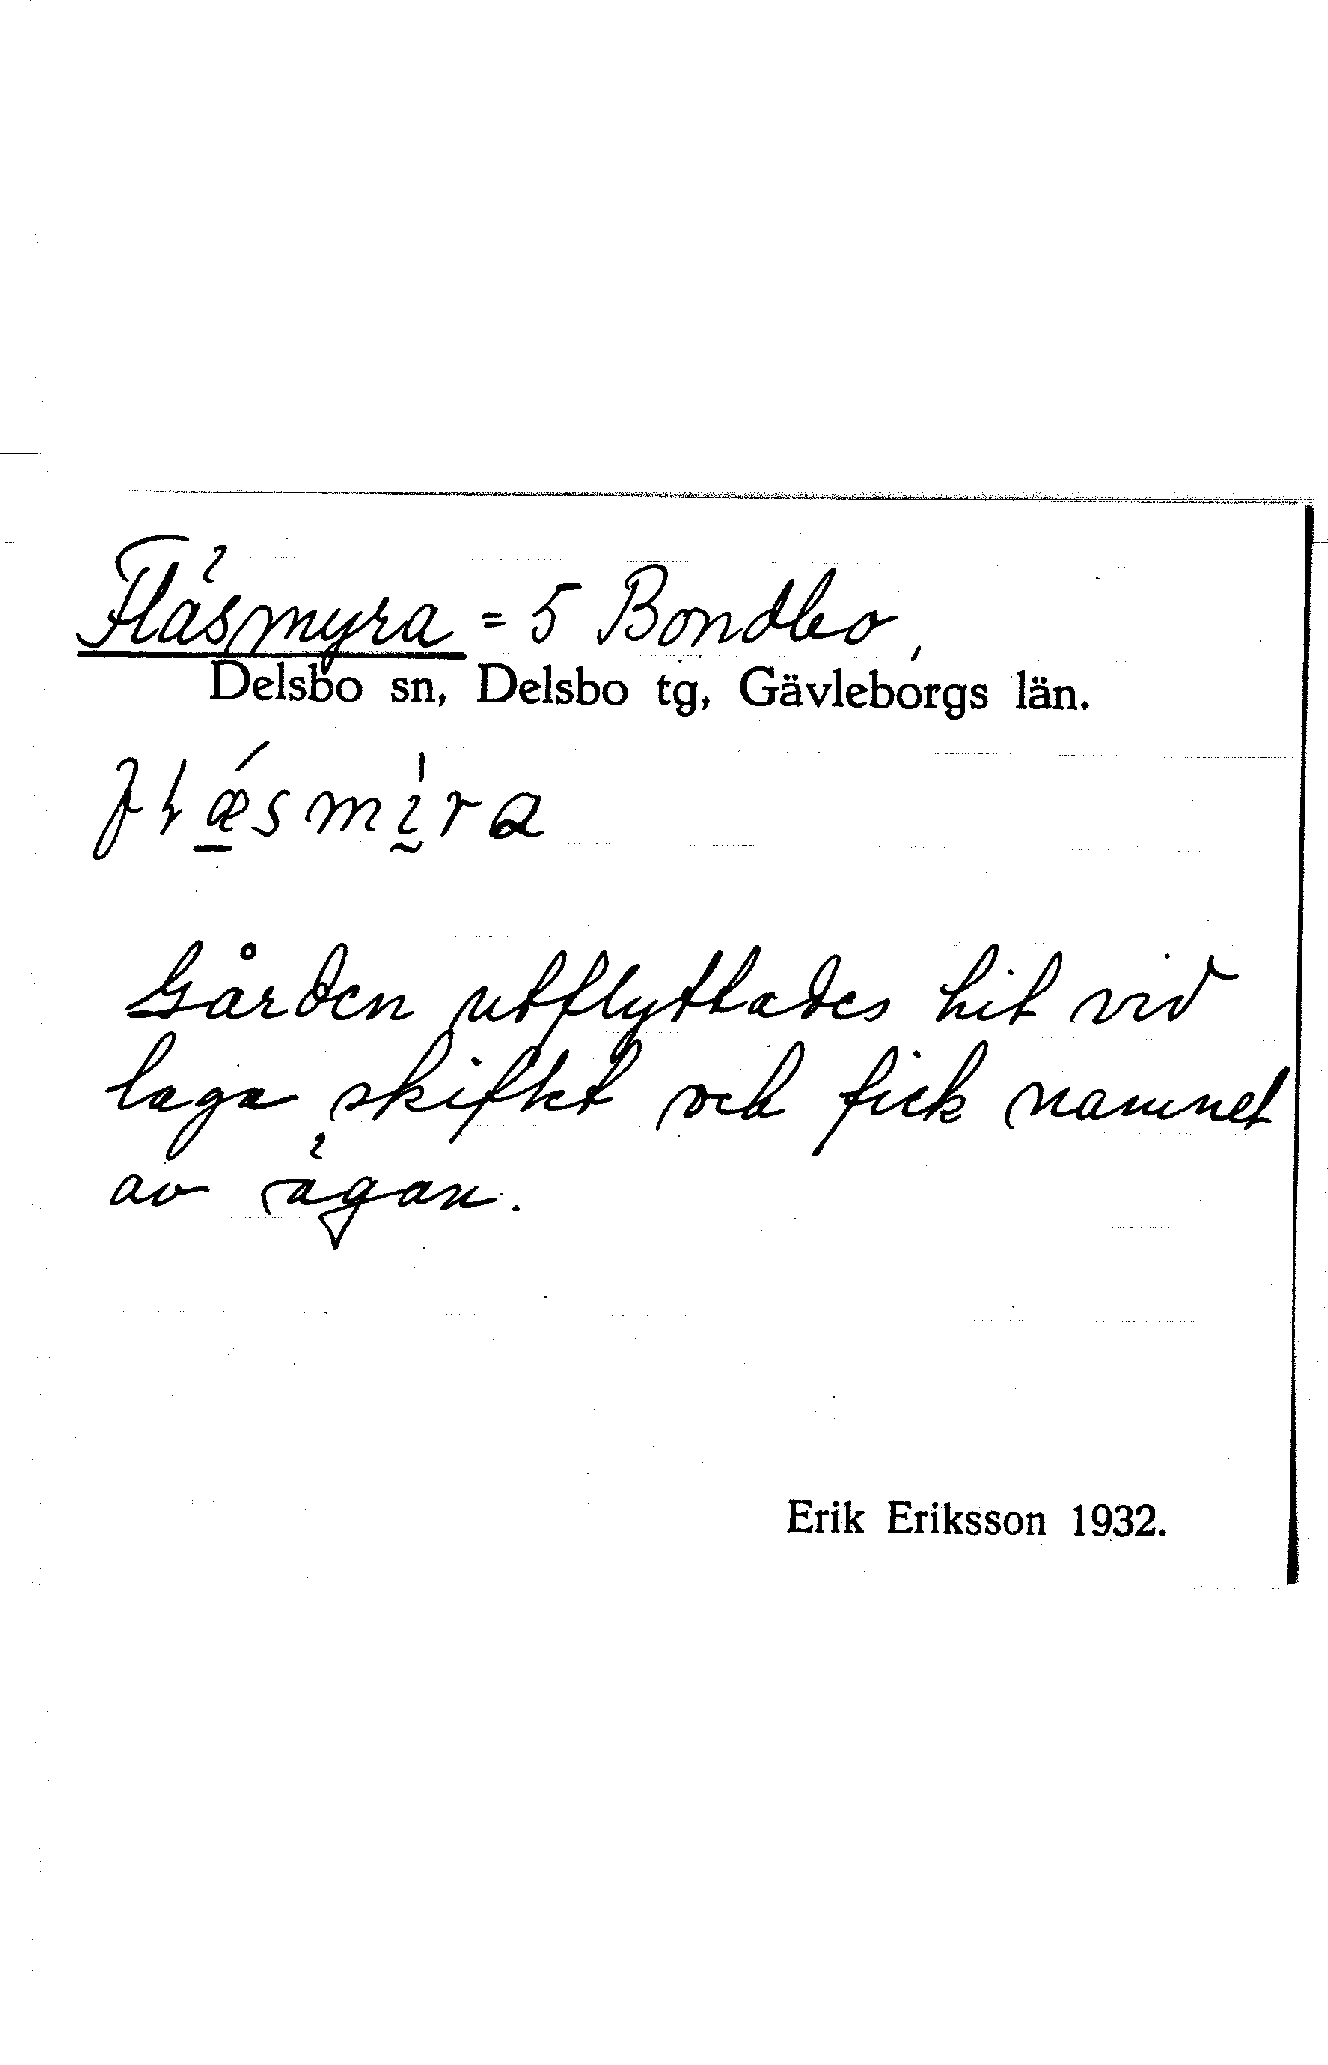 Fläsmyra = 5 Bondbo,
Delsbo sn, Delsbo tg, Gävleborgs län.
Gården utflyttades hit vid
laga skiftet och fick namnet
av ägan.
Erik Eriksson 1932.